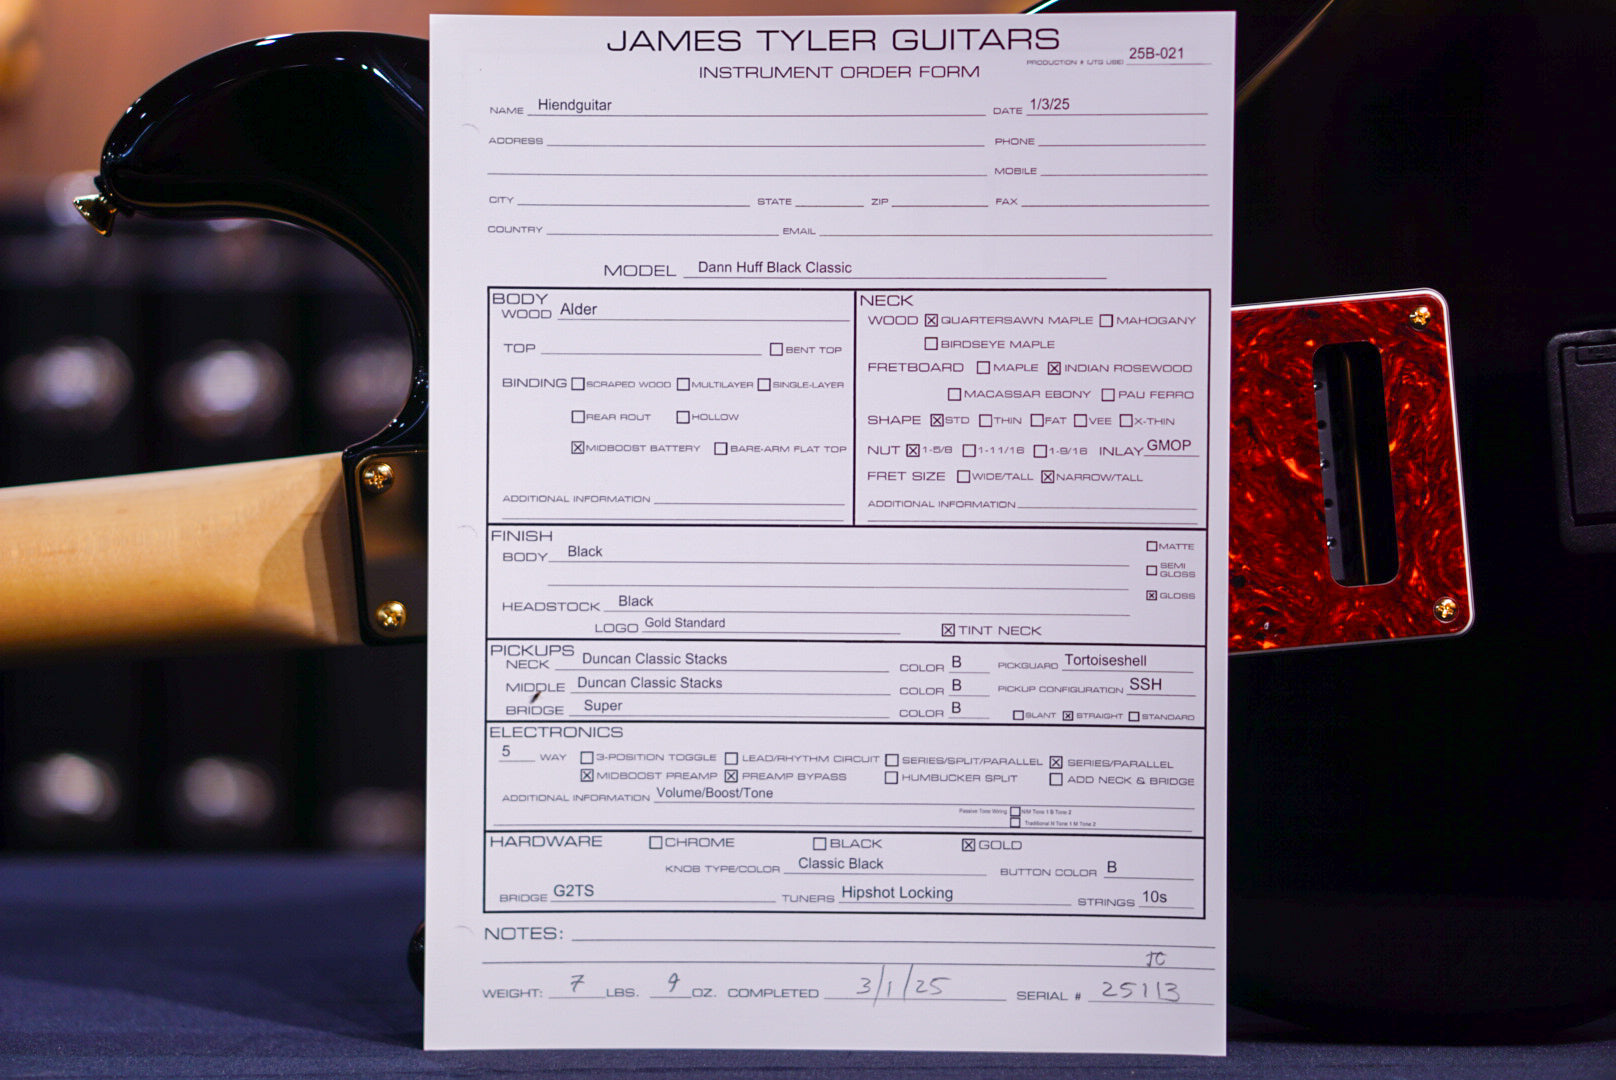 JAMES TYLER GUITARS
PRODUCTION # (JTG USE) 25B-021
INSTRUMENT ORDER FORM
NAME Hiendguitar DATE 1/3/25
ADDRESS PHONE
MOBILE
CITY STATE ZIP FAX
COUNTRY EMAIL
MODEL Dann Huff Black Classic
BODY
WOOD Alder
TOP ☐ BENT TOP
BINDING ☐ SCRAPED WOOD ☐ MULTILAYER ☐ SINGLE-LAYER
☐ REAR ROUT ☐ HOLLOW
☒ MIDBOOST BATTERY ☐ BARE-ARM FLAT TOP
ADDITIONAL INFORMATION
NECK
WOOD ☒ QUARTERSAWN MAPLE ☐ MAHOGANY
☐ BIRDSEYE MAPLE
FRETBOARD ☐ MAPLE ☒ INDIAN ROSEWOOD
☐ MACASSAR EBONY ☐ PAU FERRO
SHAPE ☒ STD ☐ THIN ☐ FAT ☐ VEE ☐ X-THIN
NUT ☒ 1-5/8 ☐ 1-11/16 ☐ 1-9/16 INLAY GMOP
FRET SIZE ☐ WIDE/TALL ☒ NARROW/TALL
ADDITIONAL INFORMATION
FINISH
BODY Black
☐ MATTE
☐ SEMI GLOSS
☒ GLOSS
HEADSTOCK Black
LOGO Gold Standard ☒ TINT NECK
PICKUPS
NECK Duncan Classic Stacks COLOR B PICKGUARD Tortoiseshell
MIDDLE Duncan Classic Stacks COLOR B PICKUP CONFIGURATION SSH
BRIDGE Super COLOR B ☐ SLANT ☒ STRAIGHT ☐ STANDARD
ELECTRONICS
5 WAY ☐ 3-POSITION TOGGLE ☐ LEAD/RHYTHM CIRCUIT ☐ SERIES/SPLIT/PARALLEL ☒ SERIES/PARALLEL
☒ MIDBOOST PREAMP ☒ PREAMP BYPASS ☐ HUMBUCKER SPLIT ☐ ADD NECK & BRIDGE
ADDITIONAL INFORMATION Volume/Boost/Tone
Passive Tone Wiring ☐ N/M Tone 1 B Tone 2
☐ Traditional N Tone 1 M Tone 2
HARDWARE ☐ CHROME ☐ BLACK ☒ GOLD
KNOB TYPE/COLOR Classic Black BUTTON COLOR B
BRIDGE G2TS TUNERS Hipshot Locking STRINGS 10s
NOTES:
JC
WEIGHT: 7 LBS. 9 OZ. COMPLETED 3/1/25 SERIAL # 25113